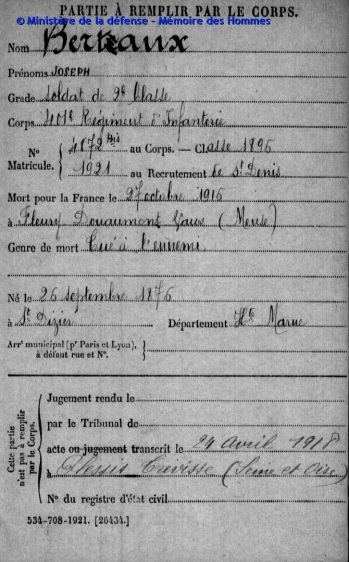 PARTIE À REMPLIR PAR LE CORPS.
© Ministère de la défense - Mémoire des Hommes
Nom Berteaux
Prénoms JOSEPH
Grade Soldat de 2e Classe
Corps 401e Régiment d'Infanterie
No 4072 bis au Corps. — Classe 1896
Matricule. 1921 au Recrutement de St Denis
Mort pour la France le 27 octobre 1916
à Fleury Douaumont Vaux (Meuse)
Genre de mort Tué à l'ennemi
Né le 26 septembre 1876
à St Dizier Département Hte Marne
Arrt municipal (pr Paris et Lyon), à défaut rue et No.
Cette partie n'est pas à remplir par le Corps.
Jugement rendu le
par le Tribunal de
acte ou jugement transcrit le 24 avril 1918
à Plessis (Seine et Oise)
No du registre d'état civil
534-708-1921. [26434.]